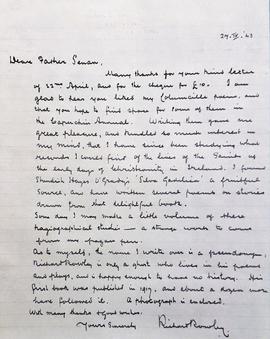 27.IV.43
Dear Father Senan,
Many thanks for your kind letter
of 22nd April, and for the cheque for £10. I am
glad to hear you liked my Columcille poems, and
that you hope to find space for some of them in
the Capuchin Annual. Writing them gave me
great pleasure, and kindled so much interest in
my mind, that I have since been studying what
records I could find of the lives of the Saints &
the early days of Christianity in Ireland. I found
Standish Hayes O'Grady's "Silva Gadelica" a fruitful
source, and have written several poems on stories
drawn from that delightful book.
Some day I may make a little volume of these
hagiographical studies — a strange work to come
from my pagan pen.
As to myself, the name I write over is a pseudonym,
Richard Rowley is only a ghost who lives in his poems
and plays, and is happy enough to have no history. His
first book was published in 1917, and about a dozen more
have followed it. A photograph is enclosed.
With many thanks & good wishes.
Yours Sincerely
Richard Rowley